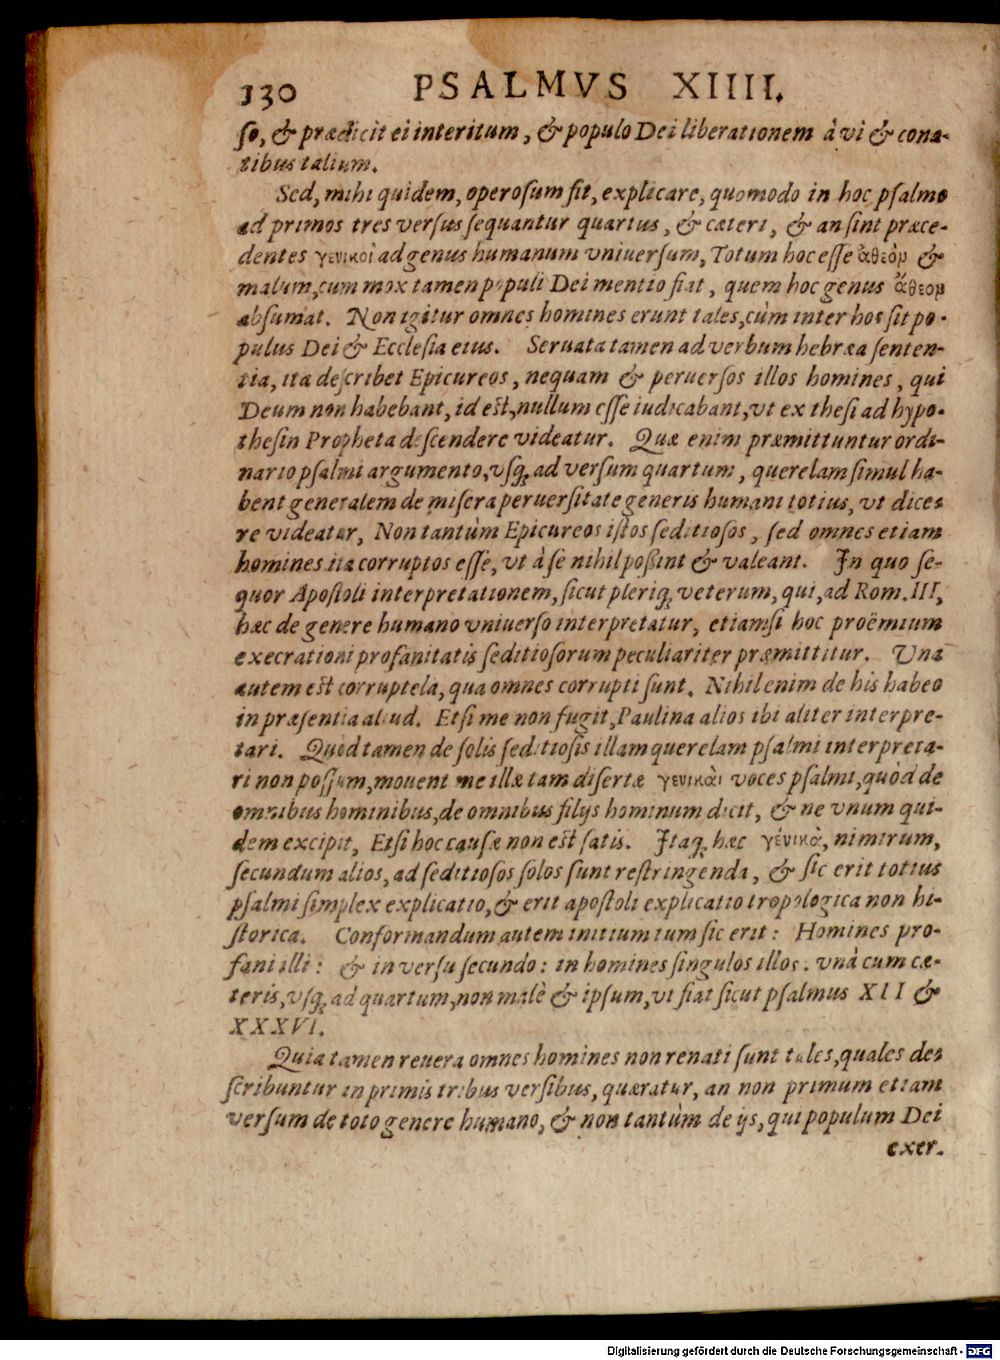 130 PSALMVS XIIII.
ſo, & prædicit ei interitum, & populo Dei liberationem à vi & cona-
tibus talium.
Sed, mihi quidem, operoſum ſit, explicare, quomodo in hoc pſalmo
ad primos tres verſus ſequantur quartus, & cæteri, & an ſint præce-
dentes γενικοὶ ad genus humanum vniuerſum, Totum hoc eſſe ἀθεὸμ &
malum, cum mox tamen populi Dei mentio fiat, quem hoc genus ἄθεομ
abſumat. Non igitur omnes homines erunt tales, cùm inter hos ſit po-
pulus Dei & Eccleſia eius. Seruata tamen ad verbum hebræa ſenten-
tia, ita deſcribet Epicureos, nequam & peruerſos illos homines, qui
Deum non habebant, id eſt, nullum eſſe iudicabant, vt ex theſi ad hypo-
theſin Propheta deſcendere videatur. Quæ enim præmittuntur ordi-
nario pſalmi argumento, vſq; ad verſum quartum, querelam ſimul ha-
bent generalem de miſera peruerſitate generis humani totius, vt dice-
re videatur, Non tantùm Epicureos iſtos ſeditioſos, ſed omnes etiam
homines ita corruptos eſſe, vt à ſe nihil poßint & valeant. In quo ſe-
quor Apoſtoli interpretationem, ſicut pleriq; veterum, qui, ad Rom. III,
hæc de genere humano vniuerſo interpretatur, etiamſi hoc proëmium
execrationi profanitatis ſeditioſorum peculiariter præmittitur. Vna
autem eſt corruptela, qua omnes corrupti ſunt. Nihil enim de his habeo
in præſentia aliud. Etſi me non fugit, Paulina alios ibi aliter interpre-
tari. Quòd tamen de ſolis ſeditioſis illam querelam pſalmi interpreta-
ri non poſſum, mouent me illæ tam diſertæ γενικὰι voces pſalmi, quòd de
omnibus hominibus, de omnibus filijs hominum dicit, & ne vnum qui-
dem excipit, Etſi hoc cauſæ non eſt ſatis. Itaq; hæc γένικὰ, nimirum,
ſecundum alios, ad ſeditioſos ſolos ſunt reſtringenda, & ſic erit totius
pſalmi ſimplex explicatio, & erit apoſtoli explicatio tropologica non hi-
ſtorica. Conformandum autem initium tum ſic erit: Homines pro-
fani illi: & in verſu ſecundo: in homines ſingulos illos. vnà cum cæ-
teris, vſq; ad quartum, non malè & ipſum, vt fiat ſicut pſalmus XII &
XXXVI.
Quia tamen reuera omnes homines non renati ſunt tales, quales de-
ſcribuntur in primis tribus verſibus, quæratur, an non primum etiam
verſum de toto genere humano, & non tantùm de ijs, qui populum Dei
exer-
Digitalisierung gefördert durch die Deutsche Forschungsgemeinschaft - DFG